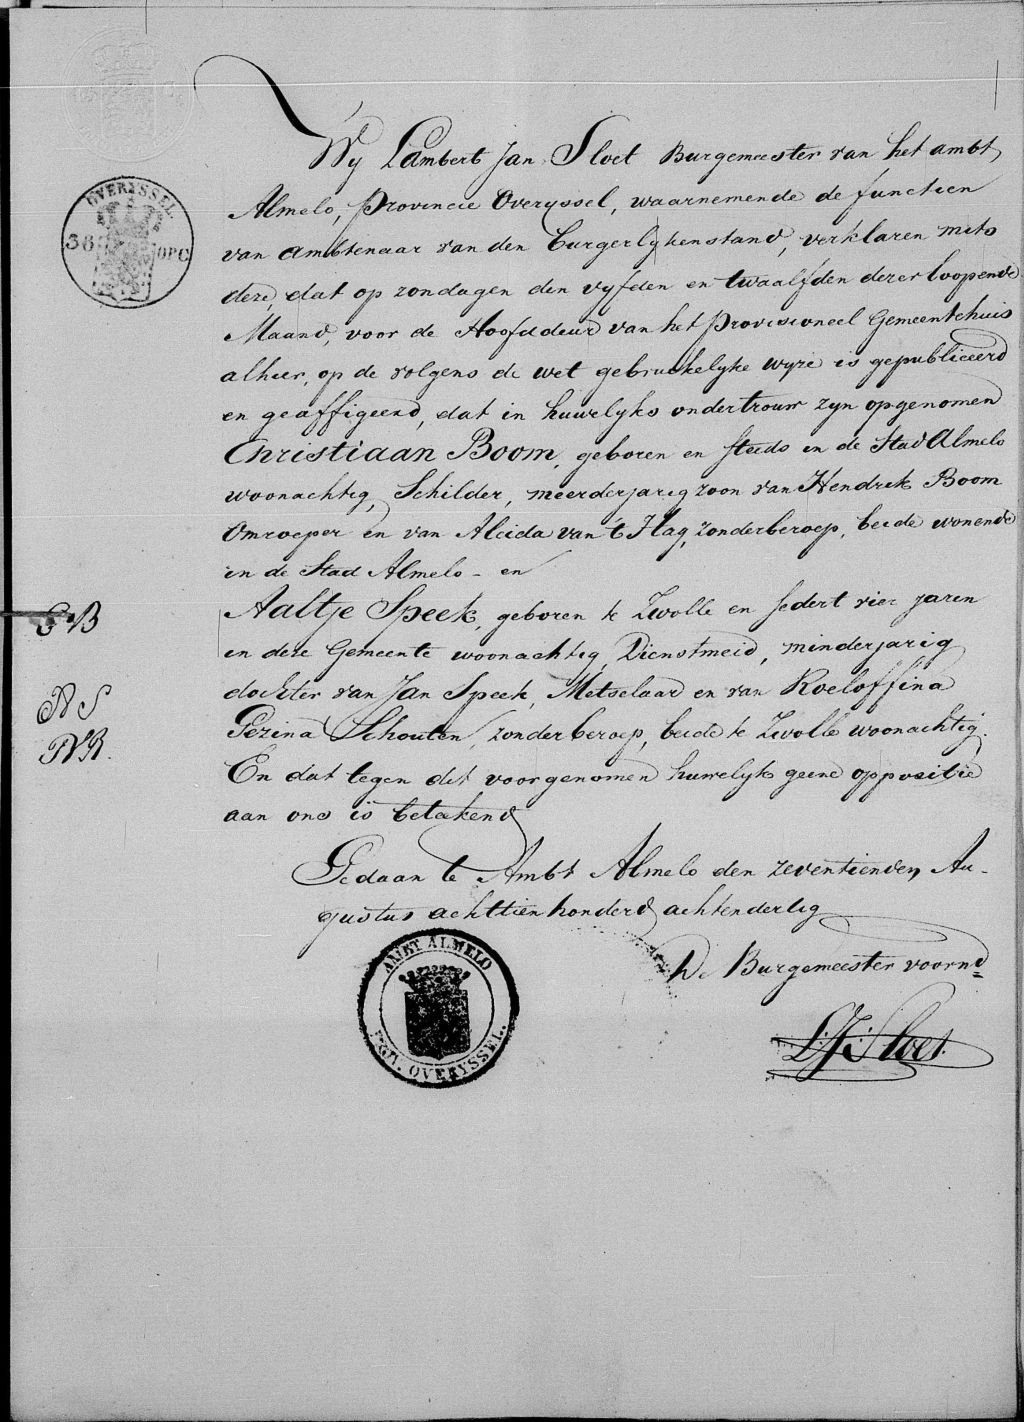 Wy Lambert Jan Sloet Burgemeester van het ambt
Almelo, Provincie Overyssel, waarnemende de functien
van ambtenaar van den Burgerlykenstand, verklaren mits
deze, dat op zondagen den vyfden en twaalfden dezer loopende
OVERYSSEL.
38
OPC
Maand, voor de Hoofddeur van het Provisioneel Gemeentehuis
alhier, op de volgens de wet gebruikelyke wyze is gepubliceerd
en geaffigeerd, dat in huwelyks ondertrouw zyn opgenomen
Christiaan Boom, geboren en steeds in de Stad Almelo
woonachtig, Schilder, meerderjarig zoon van Hendrik Boom
Omroeper en van Aleida van 't Hag, zonder beroep, beide wonende
in de Stad Almelo - en
Aaltje Speek, geboren te Zwolle en sedert vier jaren
in deze Gemeente woonachtig, Dienstmeid, minderjarig
dochter van Jan Speek, Metselaar en van Roeloffina
Gezina Schouten, zonder beroep, beide te Zwolle woonachtig.
En dat tegen dit voorgenomen huwelyk geene oppositie
aan ons is betekend
Gedaan te Ambt Almelo den zeventienden Au-
gustus achttienhonderd achtendertig
De Burgemeester voornd=
L: J: Sloet.
AMBT ALMELO
PROV. OVERYSSEL.